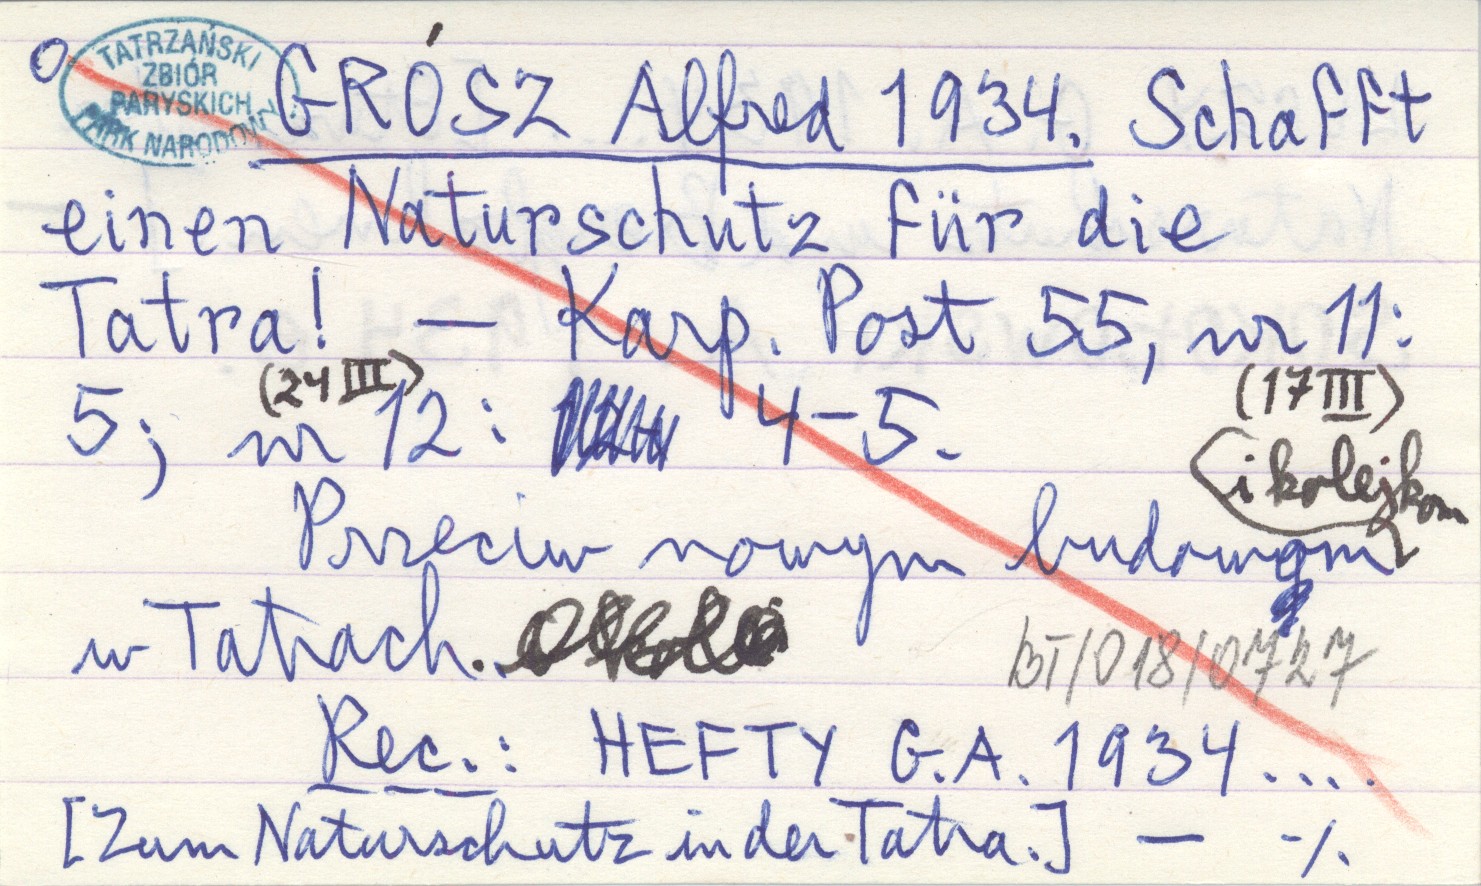 TATRZAŃSKI
ZBIÓR
PARYSKICH
PARK NARODOWY
GRÓSZ Alfred 1934. Schafft
einen Naturschutz für die
Tatra! — Karp. Post 55, nr 11:
(17 III)
5; nr 12: 4-5.
(24 III)
Przeciw nowym budowom
i kolejkom
w Tatrach.
BT/018/0727
Rec.: HEFTY G.A. 1934....
[Zum Naturschutz in der Tatra.] — -/.